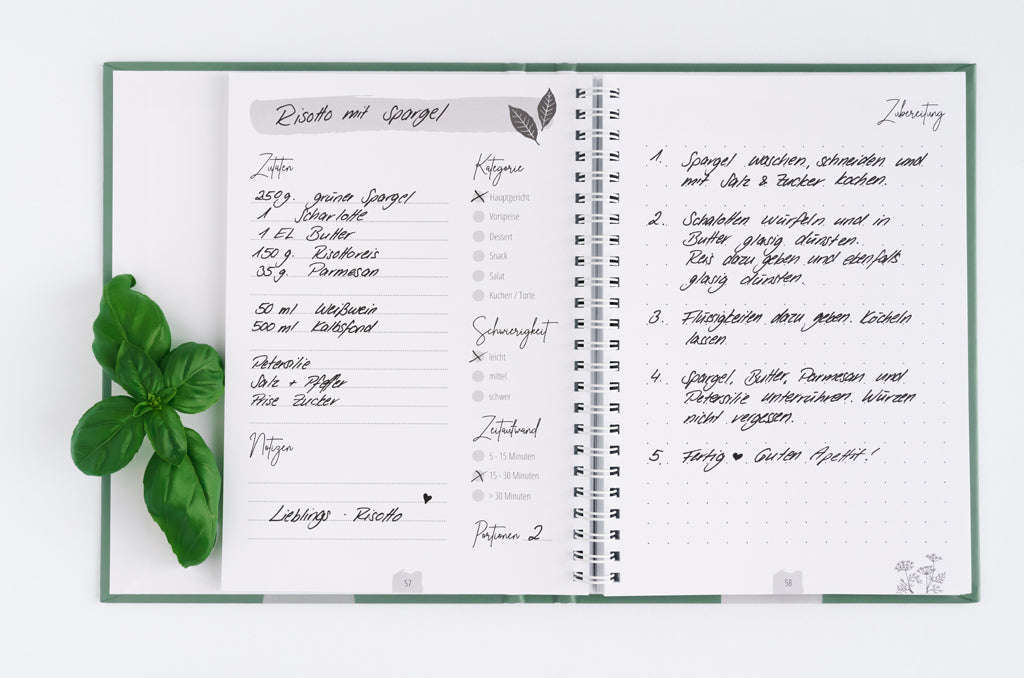 Risotto mit Spargel
Zutaten
250g. grüner Spargel
1 Scharlotte
1 EL Butter
150 g. Risottoreis
35 g. Parmesan
50 ml Weißwein
500 ml Kalbsfond
Petersilie
Salz + Pfeffer
Prise Zucker
Notizen
Lieblings - Risotto
Kategorie
Hauptgericht
Vorspeise
Dessert
Snack
Salat
Kuchen / Torte
Schwierigkeit
leicht
mittel
schwer
Zeitaufwand
5 - 15 Minuten
15 - 30 Minuten
> 30 Minuten
Portionen 2
57
Zubereitung
1. Spargel waschen, schneiden und
mit Salz & Zucker kochen.
2. Schalotten würfeln und in
Butter glasig dünsten.
Reis dazu geben und ebenfalls
glasig dünsten.
3. Flüssigkeiten dazu geben. Köcheln
lassen.
4. Spargel, Butter, Parmesan und
Petersilie unterrühren. Würzen
nicht vergessen.
5. Fertig ♥ Guten Apettit!
58